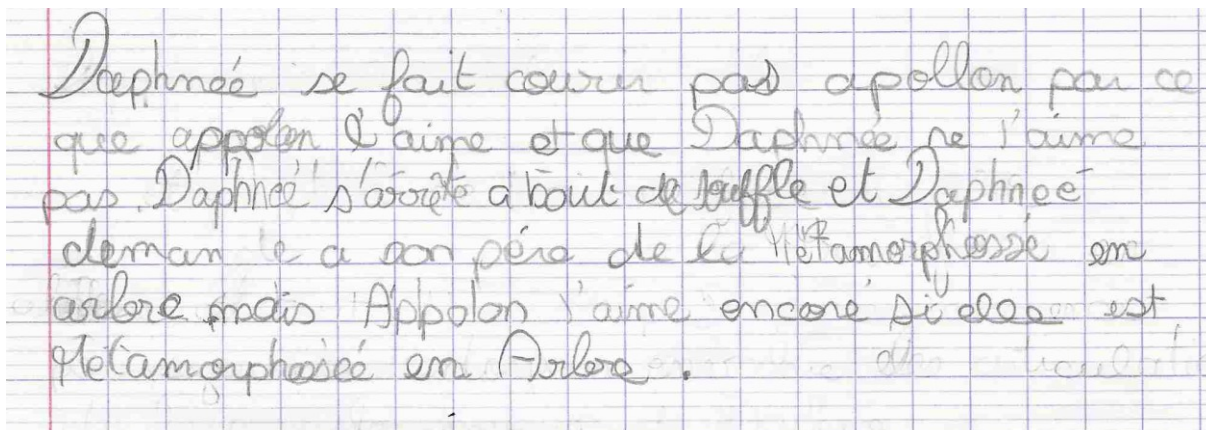 Daephneé se fait courir pas apollon par ce
que appolon l'aime et que Daphnée ne l'aime
pas. Daphneé s'arrête a bout de souffle et Daphneé
deman e a son pére de la Métamorphossé en
arbre mais Appolon l'aime encore si elle est
Métamorphoséé en Arbre.